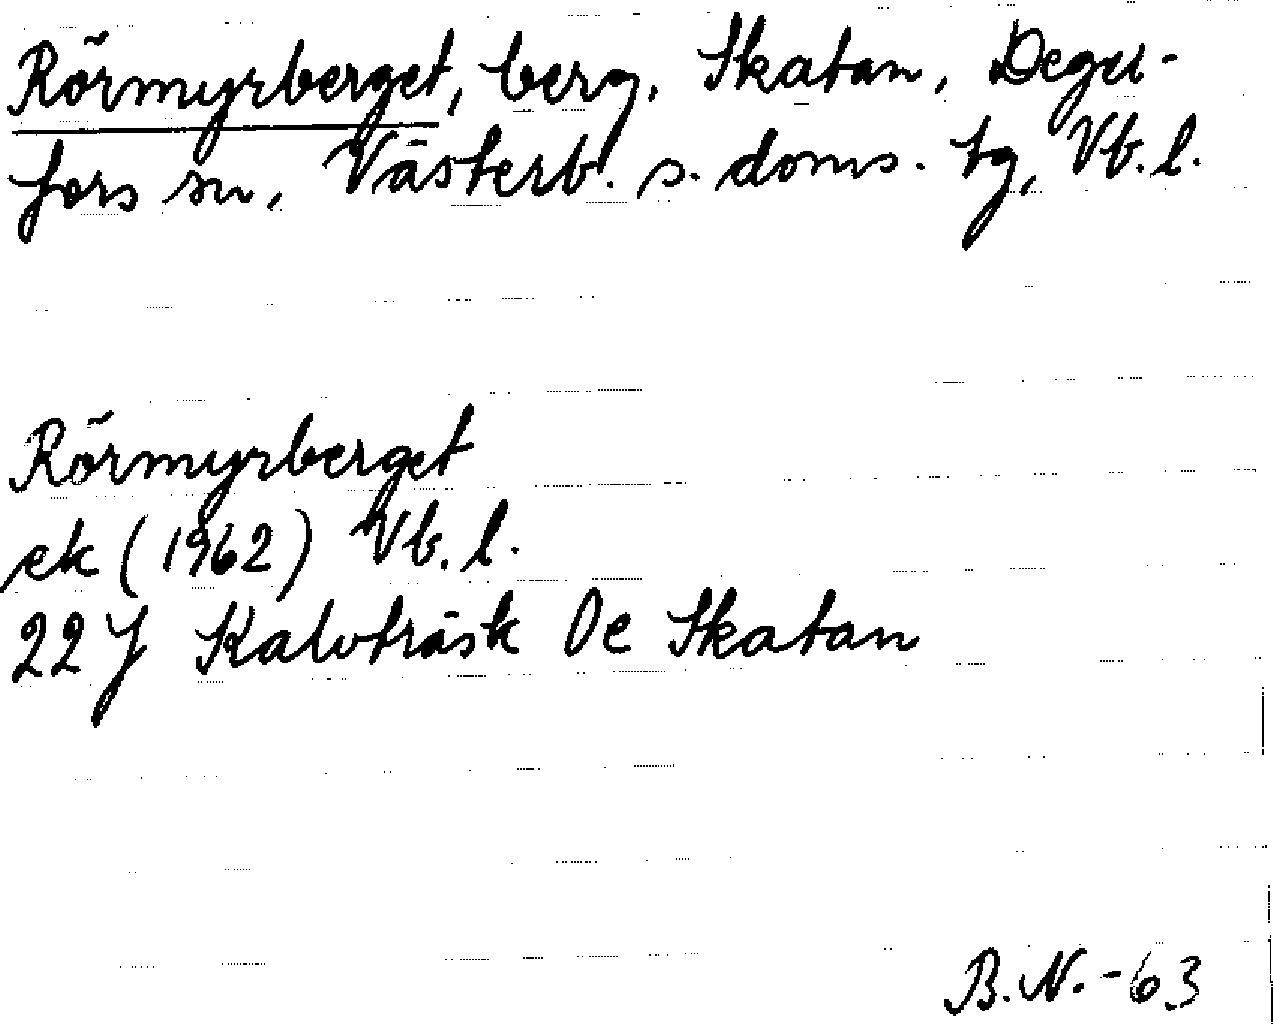 Rörmyrberget, berg, Skatan, Deger-
fors sn, Västerb. s. doms. tg, Vb. l.
Rörmyrberget
ek (1962) Vb. l.
22J Kalvträsk 0e Skatan
B.N.-63